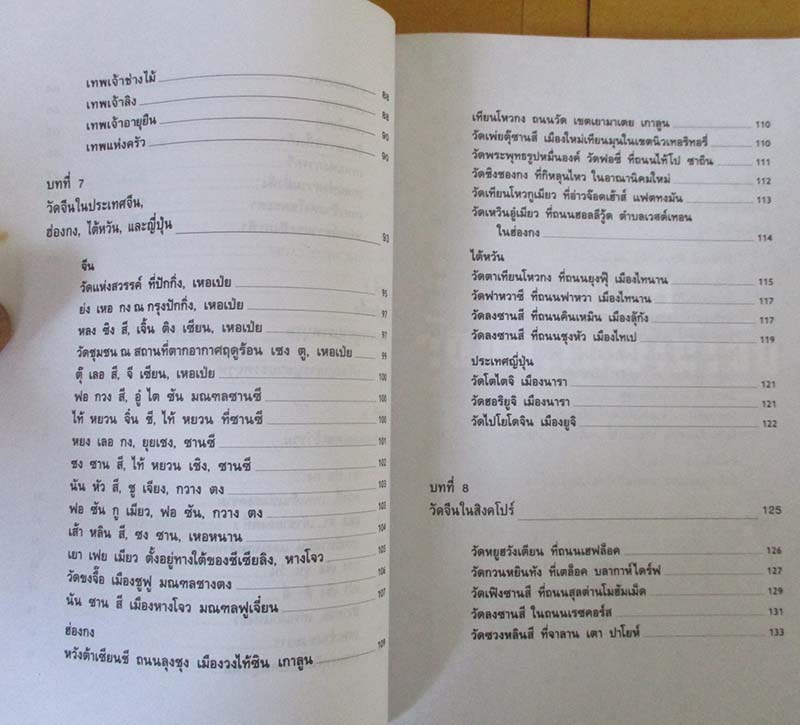 เทพเจ้าช่างไม้ 88
เทพเจ้าลิง 88
เทพเจ้าอายุยืน 90
เทพแห่งครัว 90
บทที่ 7
วัดจีนในประเทศจีน,
ฮ่องกง, ไต้หวัน, และญี่ปุ่น 93
จีน
วัดแห่งสวรรค์ ที่ปักกิ่ง, เหอเป่ย 95
ย่ง เหอ กง ณ กรุงปักกิ่ง, เหอเป่ย 97
หลง ซิง สี, เจิ้น ติง เซียน, เหอเป่ย 98
วัดชุมชน ณ สถานที่ตากอากาศฤดูร้อน เซง ตู, เหอเป่ย 99
ตุ๊ เลอ สี, จี เซียน, เหอเป่ย 100
ฟอ กวง สี, อู่ ไต ซัน มณฑลซานซี 100
ไท้ หยวน จิ๋น ซี, ไท้ หยวน ที่ซานซี 100
หยง เลอ กง, ยุยเชง, ซานซี 101
ชง ซาน สี, ไท้ หยวน เชิง, ซานซี 102
นัน หัว สี, ซู เจียง, กวาง ตง 103
ฟอ ซัน กู เมียว, ฟอ ซัน, กวาง ตง 103
เส้า หลิน สี, ซง ซาน, เหอหนาน 104
เยา เฟย เมียว ตั้งอยู่ทางใต้ของซีเซียลิง, หางโจว 105
วัดขงจื๊อ เมืองชูฟู มณฑลชางตง 106
นัน ซาน สี เมืองหางโจว มณฑลฟูเจี๋ยน 107
ฮ่องกง
หวังต้าเซียนซี ถนนลุงชุง เมืองวงไท้ซิน เกาลูน 109
เทียนโหวกง ถนนวัด เขตเยามาเตย เกาลูน 110
วัดเพ่ยตุ๊ซานสี เมืองใหม่เทียนมุนในเขตนิวเทอริทอรี่ 110
วัดพระพุทธรูปหมื่นองค์ วัดฟอซี่ ที่ถนนไท้โป ซาถิน 111
วัดชิงซองกง ที่กีหลุนไหว ในอาณานิคมใหม่ 112
วัดเทียนโหวกูเมียว ที่อ่าวจ๊อดเฮ้าส์ แฟตทงมัน 113
วัดเหวินอู่เมียว ที่ถนนฮอลลีวู้ด ตำบลเวสต์เทอน
ในฮ่องกง 114
ไต้หวัน
วัดตาเทียนโหวกง ที่ถนนยุงฟุ๊ เมืองไทนาน 115
วัดฟาหวาซี ที่ถนนฟาหวา เมืองไทนาน 117
วัดลงซานสี ที่ถนนคินเหมิน เมืองลุ้กัง 117
วัดลงซานสี ที่ถนนชุงหัว เมืองไทเป 119
ประเทศญี่ปุ่น
วัดโตไตจิ เมืองนารา 121
วัดฮอริยูจิ เมืองนารา 121
วัดไบโยโดจิน เมืองยูจิ 122
บทที่ 8
วัดจีนในสิงคโปร์ 125
วัดหยูฮวังเตียน ที่ถนนเฮฟล็อค 126
วัดกวนหยินทัง ที่เตล็อค บลากาห์ไดร์ฟ 127
วัดเฟิงซานสี ที่ถนนสุลต่านโมฮัมเม็ด 129
วัดลงซานสี ในถนนเรซคอร์ส 131
วัดซวงหลินสี ที่จาลาน เตา ปาโยห์ 133